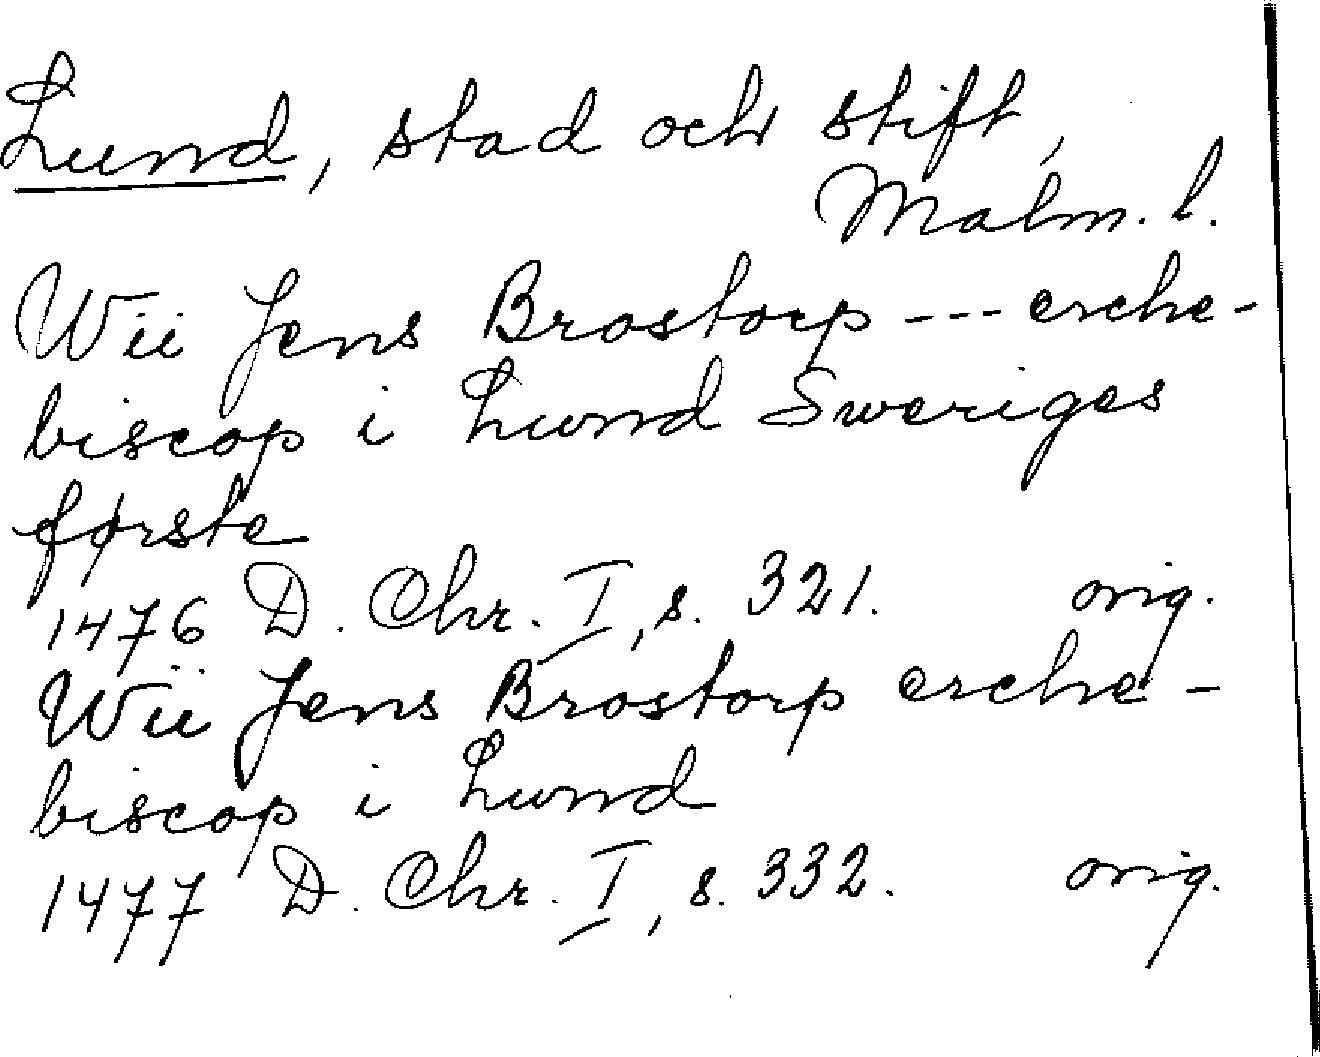 Lund, stad och stift,
Malm. l.
Wii Jens Brostorp --- erche-
biscop i Lund Sweriges
første
1476 D. Chr. I, s. 321. orig.
Wii Jens Brostorp erche-
biscop i Lund
1477 D. Chr. I, s. 332. orig.